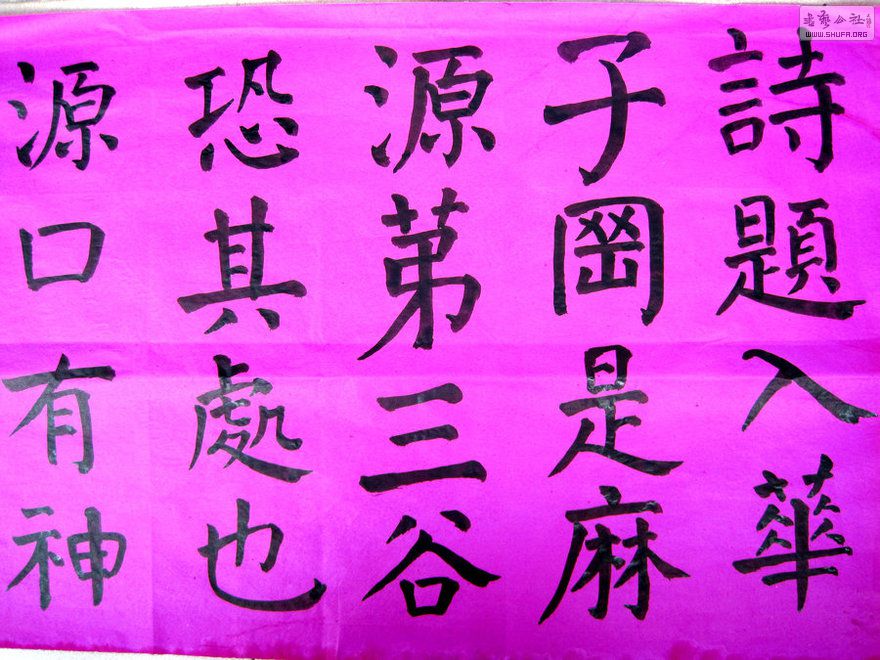 詩題入華
子岡是麻
源苐三谷
恐其處也
源口有神
書藝公社
WWW.SHUFA.ORG